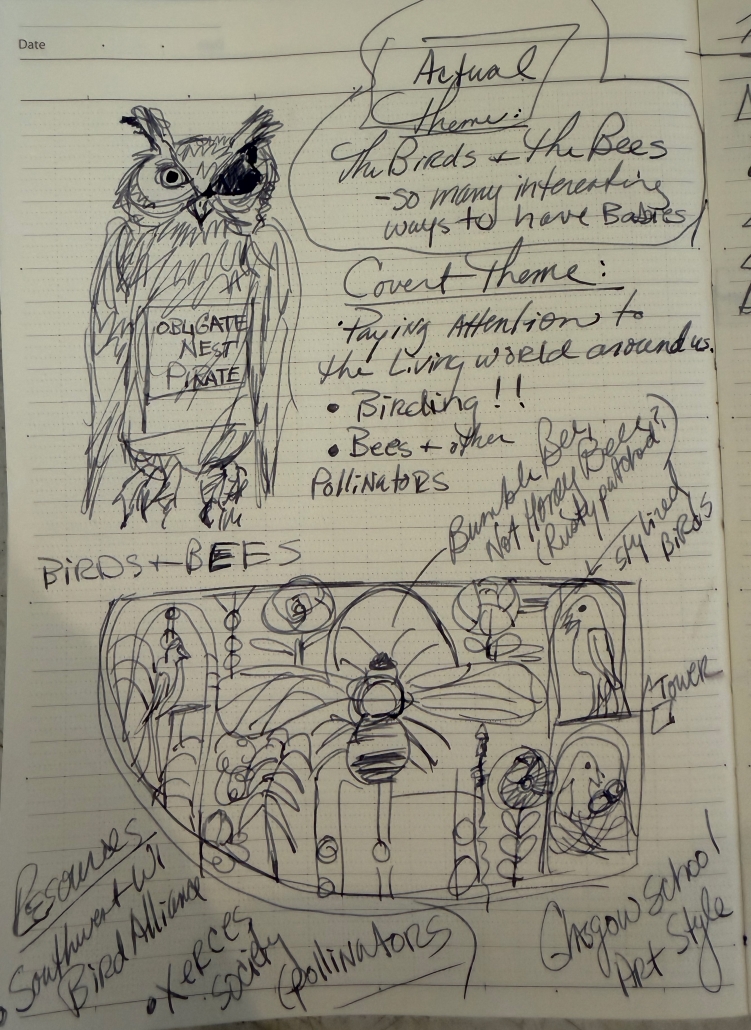 Date
Actual
Theme:
The Birds + the Bees
-so many interesting
ways to have Babies
Covert Theme:
• Paying Attention to
the Living world around us.
• Birding!!
• Bees + other
Pollinators
OBLIGATE
NEST
PIRATE
Bumble Bee,
Not Honey Bee
(Rusty patched?)
stylized
Birds
BIRDS + BEES
Tower
Resources
• Southwest Wi
Bird Alliance
• Xerces
Society
(Pollinators
Glasgow School
Art Style